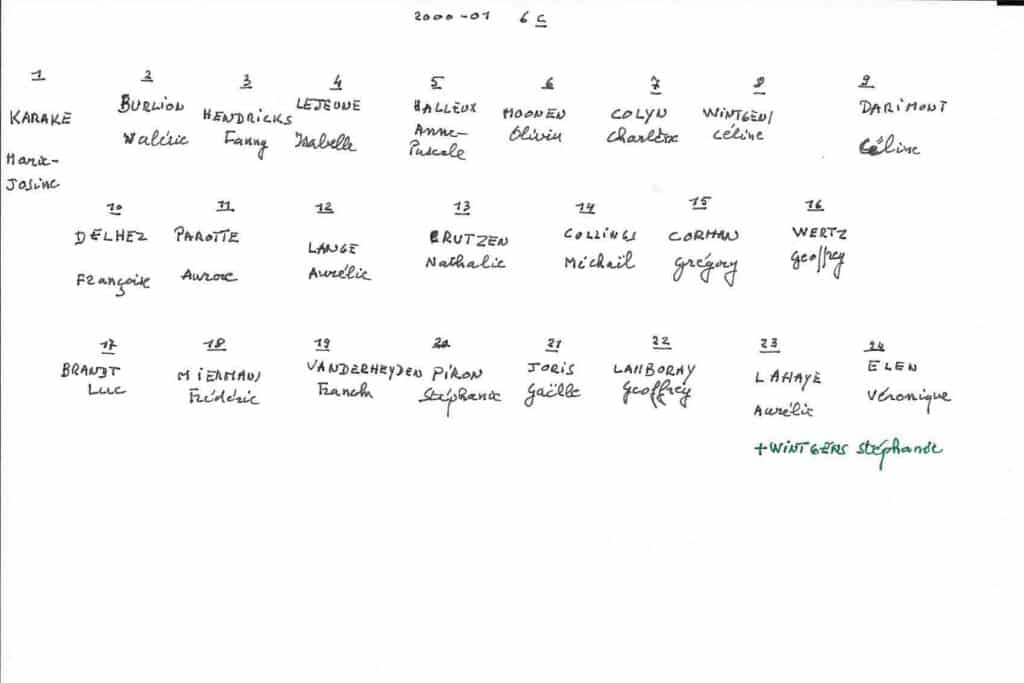 2000-01 6 C
1 2 3 4 5 6 7 8 9
KARAKE BURLION HENDRICKS LEJEUNE HALLEUX MOONEN COLYN WINTGENS DARIMONT
Marie-Josine Valérie Fanny Isabelle Anne-Pascale Olivier Charlène Céline Céline
10 11 12 13 14 15 16
DELHEZ PAROTTE LANGE CRUTZEN COLLINGS CORMAN WERTZ
Françoise Aurore Aurélie Nathalie Michaïl Grégory Geoffrey
17 18 19 20 21 22 23 24
BRANDT MIERMANS VANDERHEYDEN PIRON JORIS LAMBORAY LAHAYE ELEN
Luc Frédéric Franck Stéphanie Gaëlle Geoffrey Aurélie Véronique
+WINTGENS Stéphanie